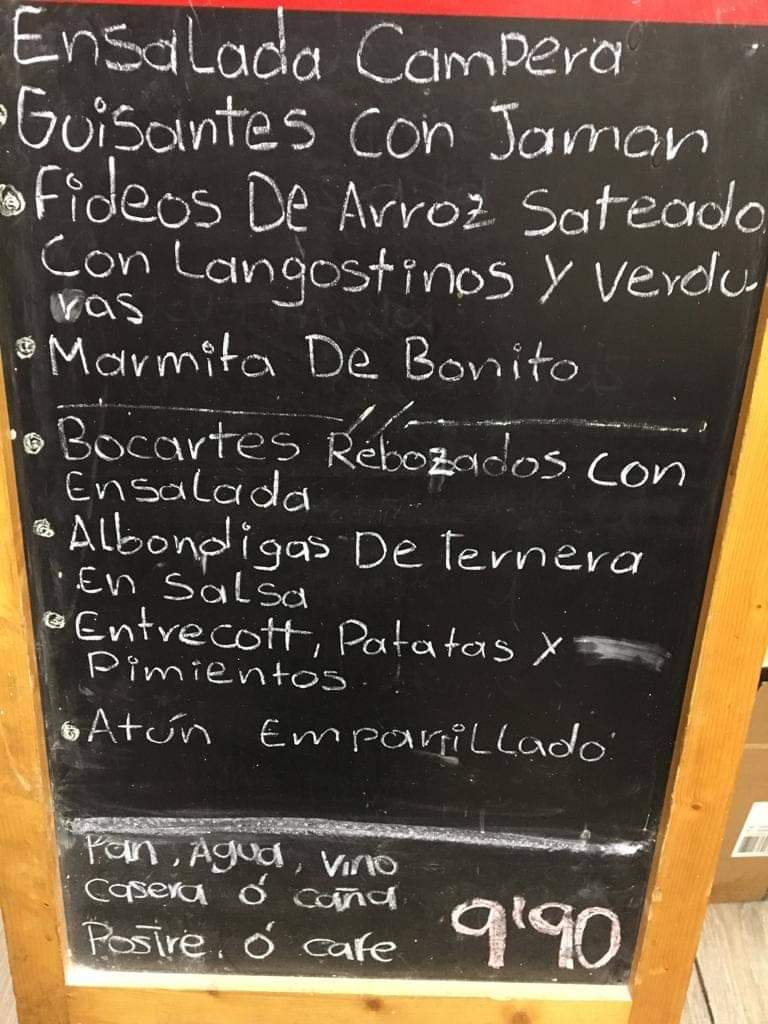 Ensalada Campera
Guisantes Con Jamon
Fideos De Arroz Sateado
Con Langostinos y verdu
ras
Marmita De Bonito
Bocartes Rebozados con
Ensalada
Albondigas De Ternera
En Salsa
Entrecott, Patatas y
Pimientos
Atún Emparrillado
Pan, Agua, vino
casera ó caña
Postre, ó cafe
9'90